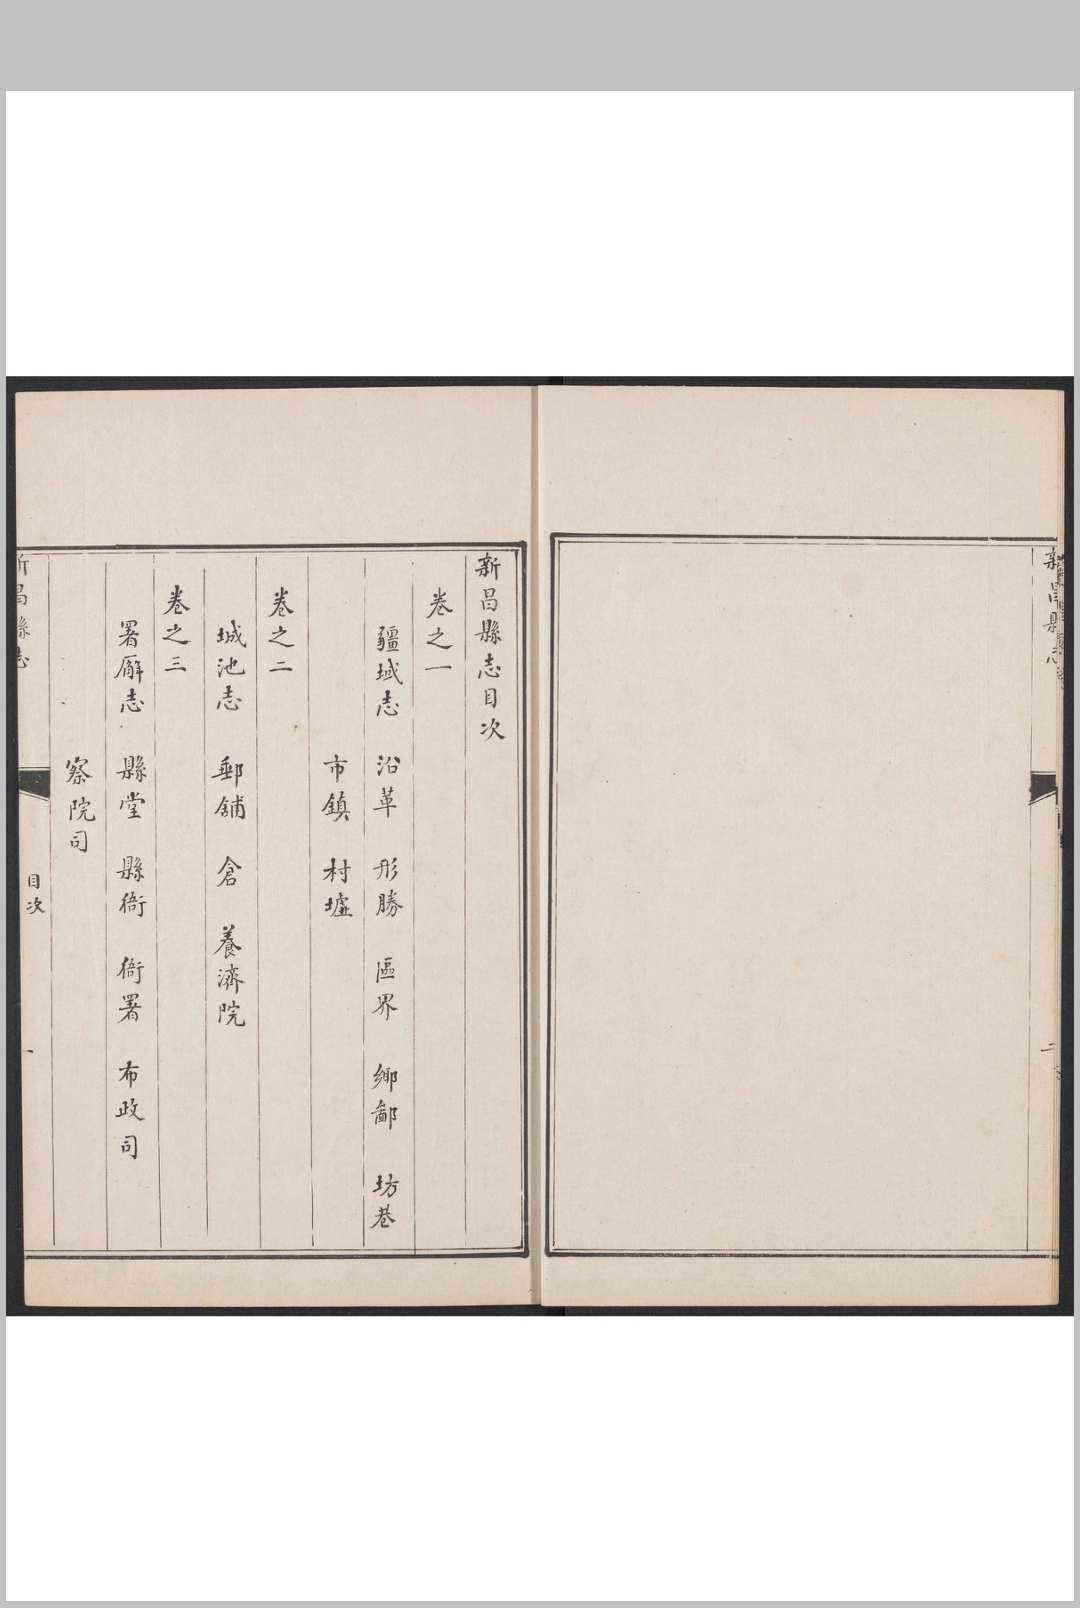 新昌縣志
二
新昌縣志目次
卷之一
疆域志 沿革 形勝 區界 鄉鄙 坊巷
市鎮 村墟
卷之二
城池志 郵舖 倉 養濟院
卷之三
署廨志 縣堂 縣衙 衙署 布政司
察院司
新昌縣志 目次 一